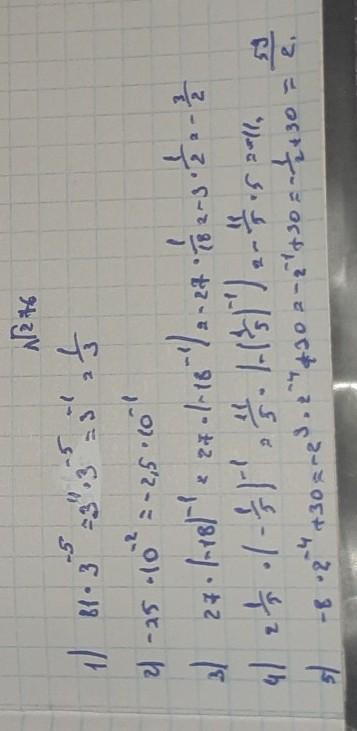 √276
1) 81·3⁻⁵ = 3⁴·3⁻⁵ = 3⁻¹ = 1/3
2) -25·10⁻² = -2,5·10⁻¹
3) 27·(-18)⁻¹ = 27·(-18⁻¹) = -27·1/18 = -3·1/2 = -3/2
4) 2 1/5·(-1/5)⁻¹ = 11/5·(-(1/5)⁻¹) = -11/5·5 = -11,
5) -8·2⁻⁴+30 = -2³·2⁻⁴+30 = -2⁻¹+30 = -1/2+30 = 59/2.